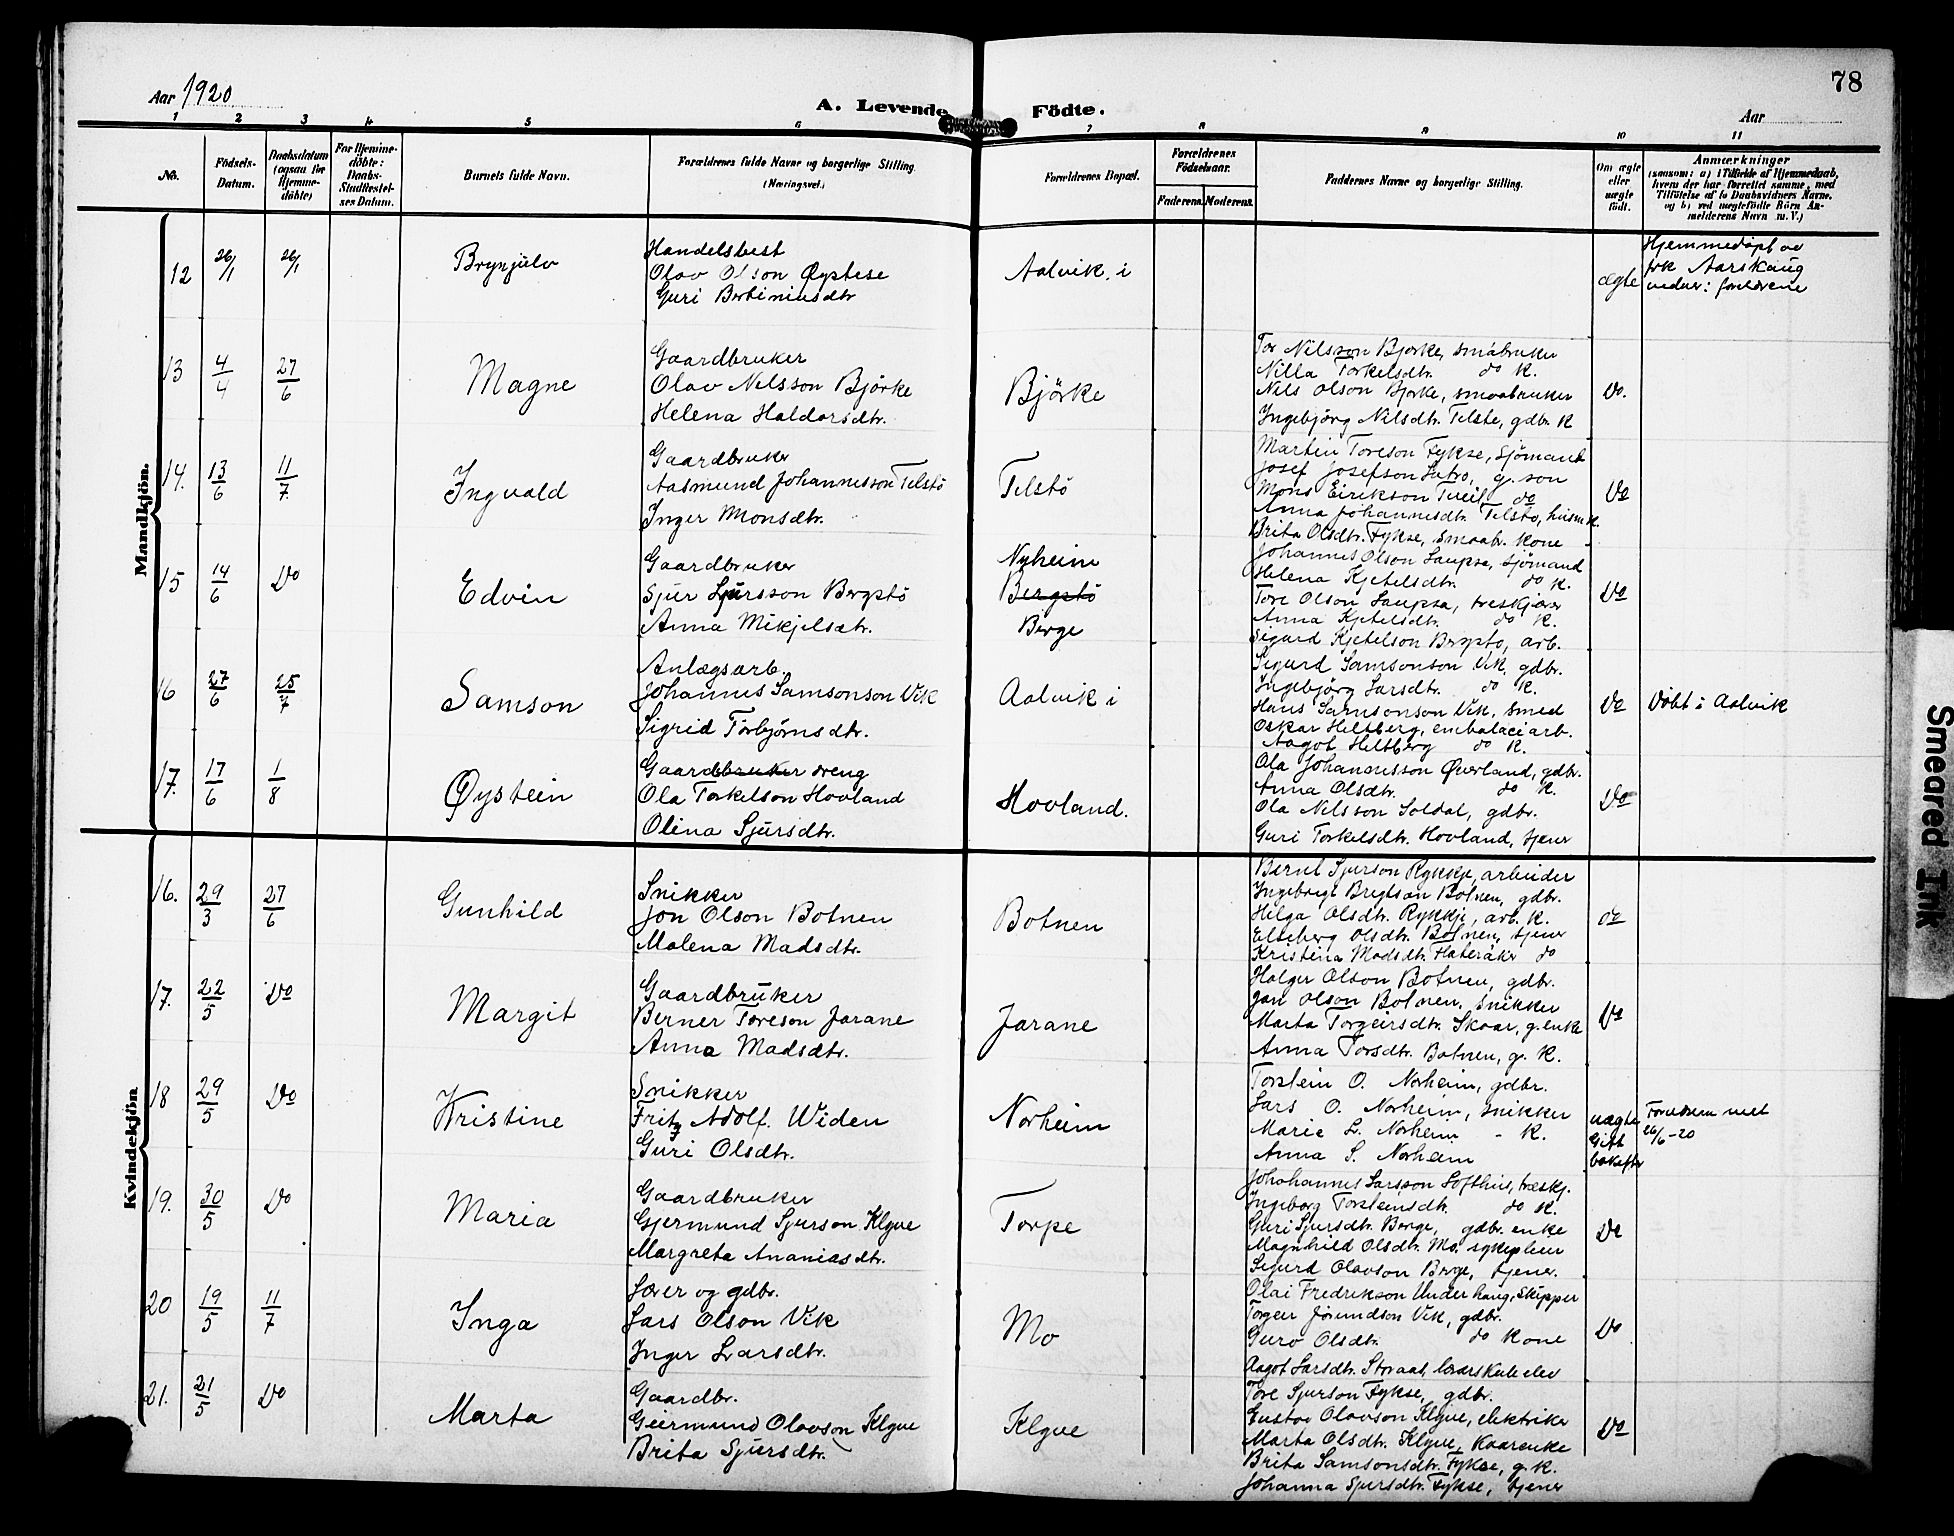 78
Aar 1920
A. Levende Födte.
Aar
1 2 3 4 5 6 7 8 9 10 11
No.
Födsels-Datum.
Daabsdatum (ogsaa for Hjemme-döbte)
For Hjemme-döbte: Daabs-Stadfæstel-ses Datum.
Barnets fulde Navn.
Forældrenes fulde Navne og borgerlige Stilling. (Næringsvei.)
Forældrenes Bopæl.
Forældrenes Födselsaar.
Faderens. Moderens.
Faddernes Navne og borgerlige Stilling.
Om ægte eller uægte födt.
Anmærkninger
(saasom: a) i Tilfælde af Hjemmedaab, hvem der har forrettet samme, med Tilföielse af to Daabsvidners Navne, og b) ved uægtefödte Börn An-melderens Navn m. V.)
Mandkjön.
12 26/1 26/1 Brynjulv
Handelsbest
Olav Olson Øystese
Guri Bertiniusdtr
Aalvik i
ægte
Hjemmedöpt av
frk Aarskaug
vidner: foreldrene
13 4/4 27/6 Magne
Gaardbruker
Olav Nilsson Björke
Helena Haldorsdtr.
Björke
Tor Nilsson Bjorke, småbruker
Nilla Torkelsdtr. do K.
Nils Olson Bjorke, smaabruker
Ingebjörg Nilsdtr. Telste, gdbr. K
Do.
14. 13/6 11/7 Ingvald
Gaardbruker
Aasmund Johannesson Telstö
Inger Monsdtr.
Telstö
Martin Toreson Fykse, Sjömand
Josef Josefson Sutro, g. son
Mons Eirikson Tveit, do
Anna Johannesdtr. Telsto, husm K.
Brita Olsdtr. Fykse, smaabr. kone
Do
15 14/6 Do Edvin
Gaardbruker
Sjur Sjursson Bergstö
Anna Mikjelsdtr.
Nyheim
Bergstö
Berge
Johannes Olson Laupsa, sjömand
Helena Kjetelsdtr. do K.
Tore Olson Laupsa, treskjærer
Anna Kjetelsdtr. do K.
Sigurd Kjetelson Bergsto, arb.
Do
16 27/6 25/7 Samson
Anlægsarb.
Johannes Samsonson Vik
Sigrid Torbjörnsdtr.
Aalvik i
Sigurd Samsonson Vik, gdbr.
Ingebjörg Larsdtr. do K.
Hans Samsonson Vik, smed
Oskar Heltberg, embalagearb.
Aagot Heltberg do K.
Do
Döbt i Aalvik
17. 17/6 1/8 Øystein
Gaardbruker dreng
Ola Torkelson Hovland
Olina Sjursdtr.
Hovland.
Ola Johannesson Överland, gdbr.
Anna Olsdtr. do K.
Ola Nilsson Soldal, gdbr.
Guri Torkelsdtr. Hovland, tjener
Do
Kvindekjön
16. 29/3 27/6 Gunhild
Snikker
Jon Olson Botnen
Malena Madsdtr.
Botnen
Bernt Sjurson Rykkje, arbeider
Ingebrigt Brigtson Botnen, gdbr.
Helga Olsdtr. Rykkje, arb. K.
Elseberg Olsdtr. Botnen, tjener
Kristina Madsdtr. Flateråker do
do
17. 22/5 Do Margit
Gaardbruker
Berner Toreson Jarane
Anna Madsdtr.
Jarane
Holger Olson Botnen, gdbr.
Jon Olson Botnen, snikker
Marta Torgeirsdtr. Skaar, g. enke
Anna Torsdtr. Botnen, g. K.
Do
18 29/5 Do Kristine
Snikker
Fritz Adolf Widen
Guri Olsdtr.
Norheim
Torstein O. Norheim, gdbr.
Lars O. Norheim, snikker
Marie L. Norheim - K.
Anna S. Norheim
uægte
Gift
bakefter
26/6-20
19. 30/5 Do Maria
Gaardbruker
Gjermund Sjurson Klyve
Margreta Ananiasdtr.
Torpe
Johohannes Larsson Lofthus, træskj.
Ingeborg Torsteinsdtr. do K.
Guri Sjursdtr. Berge, gdbr. enke
Magnhild Olsdtr. Mo, sykepleier
Sigurd Olavson Berge, tjener.
Do
20 19/5 11/7 Inga
Lærer og gdbr.
Lars Olson Vik
Inger Larsdtr.
Mo
Olai Fredrikson Underhaug, Skipper
Torgeir Jörundson Vik, gdbr.
Guro Olsdtr. do kone
Aagot Larsdtr. Storaas, lærarskule elev
Do
21. 21/5 Do Marta
Gaardbr.
Geirmund Olavson Klyve
Brita Sjursdtr.
Klyve
Tore Sjurson Fykse, gdbr.
Gustav Olavson Klyve, elektriker
Marta Olsdtr. Klyve, Kaarenke
Brita Samsonsdtr. Fykse, g. K.
Johanna Sjursdtr. Fykse, tjener
Do
Smeared Ink